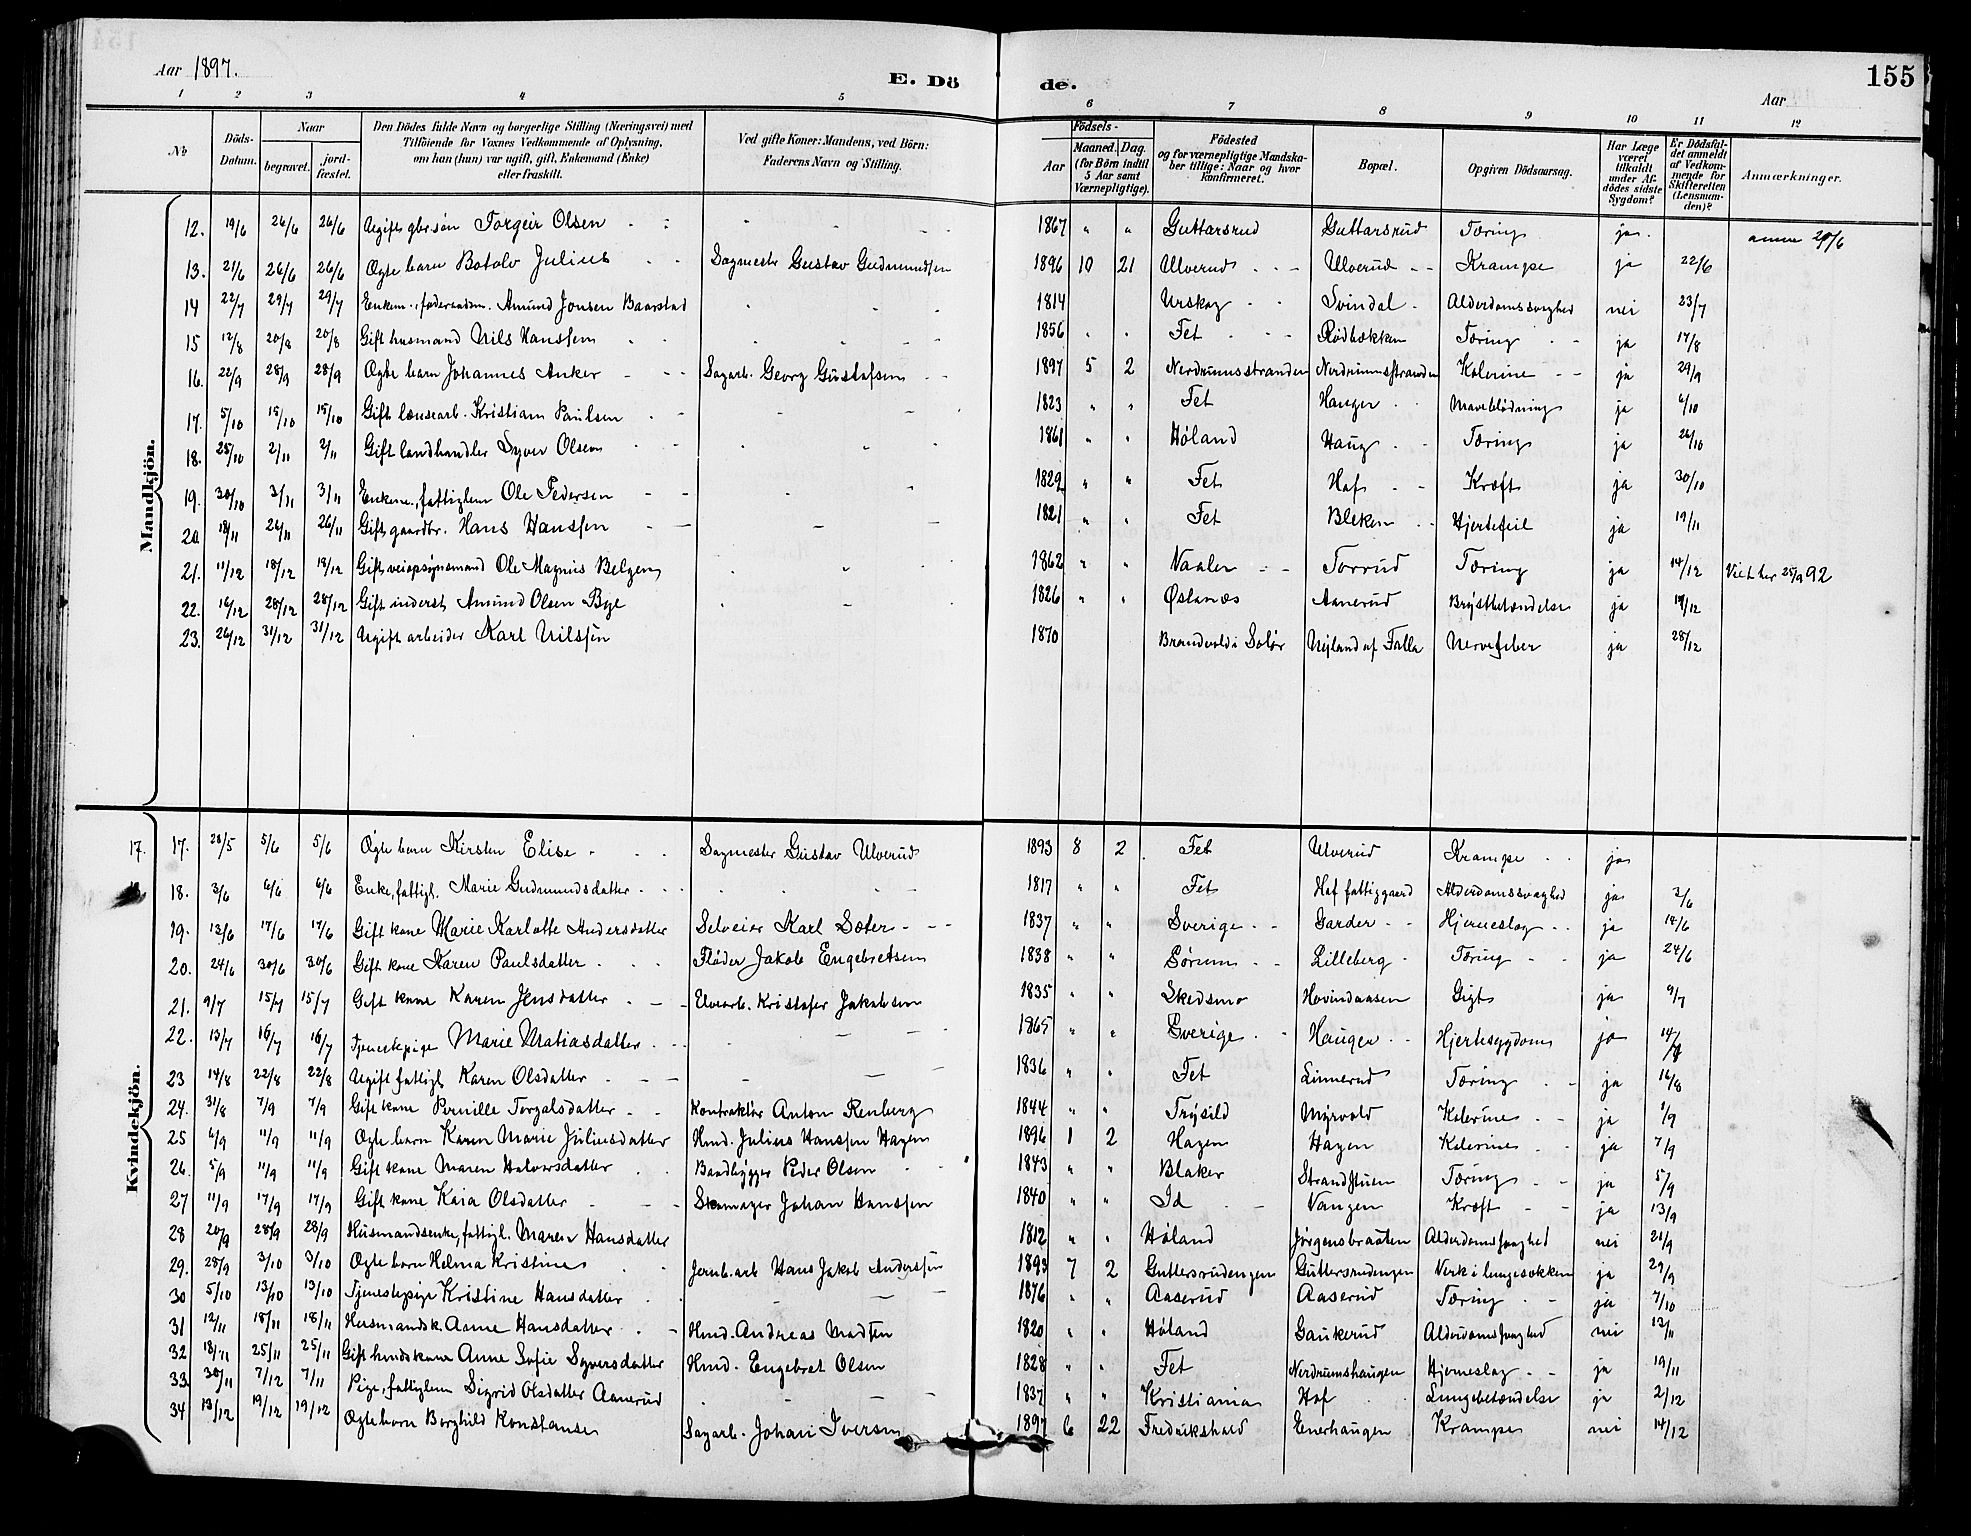 Aar 1897.
E. Dö
de.
155
Aar
1 2 3 4 5 6 7 8 9 10 11 12
No
Döds-Datum.
Naar
begravet.
jord-fæstet.
Den Dödes fulde Navn og borgerlige Stilling (Næringsvei) med
Tilföiende for Voxnes Vedkommende af Oplysning,
om han (hun) var ugift, gift, Enkemand (Enke)
eller fraskilt.
Ved gifte Koner: Mandens, ved Börn:
Faderens Navn og Stilling.
Födsels-
Aar
Maaned. Dag.
(for Börn indtil
5 Aar samt
Værnepligtige).
Födested
og for værnepligtige Mandska-
ber tillige: Naar og hvor
konfirmeret.
Bopæl.
Opgiven Dödsaarsag.
Har Læge
været
tilkaldt
under Af-
dödes sidste
Sygdom?
Er Dödsfal-
det anmeldt
af Vedkom-
mende for
Skifteretten
(Lensman-
den)?
Anmærkninger.
Mandkjön.
12. 19/6 26/6 26/6 Ugift gbr.søn Torgeir Olsen 1867 " " Guttersrud Guttersrud Tæring ja. anm 20/6
13. 21/6 26/6 26/6 Ægte barn Botolv Julius Sagmester Gustav Gudmundsen 1896 10 21 Ulverud Ulverud Krampe ja 22/6
14 22/7 29/7 29/7 Enkem., føderaadm. Amund Jonsen Baarstad 1814 Urskog Svindal Alderdomssvaghed nei 23/7
15 12/8 20/8 20/8 Gift husmand Nils Hanssen 1856 " " Fet Rødbækken Tæring ja 17/8
16. 22/9 28/9 28/9 Ægte barn Johannes Anker Sagarb. Georg Gustafsen 1897 5 2 Nerdrumsstranden Nerdrumsstranden Kolerine ja 29/9
17. 5/10 15/10 15/10 Gift lænsearb. Kristian Paulsen 1823 " " Fet Hauger Maveblødning ja 6/10
18. 25/10 2/11 2/11 Gift landhandler Syver Olsen 1861 " " Høland Haug Tæring ja 26/10
19. 30/10 3/11 3/11 Enkem., fattiglem Ole Pedersen 1829 " " Fet Hof Kræft ja 30/10
20. 18/11 26/11 26/11 Gift gaardbr. Hans Hanssen 1821 " " Fet Bleken Hjertefeil ja 19/11
21. 11/12 18/12 18/12 Gift veiopsynsmand Ole Magnus Belgen 1862 " " Vaaler Torrud Tæring ja 14/12 Viet her 25/9 92
22. 16/12 28/12 28/12 Gift inderst Amund Olsen Bye 1826 " " Øslanæs Aanerud Brystbetændelse ja 17/12
23. 26/12 31/12 31/12 Ugift arbeider Karl Nilssen 1870 Brandvold i Solør Nyland af Falla Nervefeber ja 28/12
Kvindekjön.
17. 17. 28/5 5/6 5/6 Ægte barn Kirsten Elise Sagmester Gustav Ulverud 1893 8 2 Fet Ulverud Krampe ja
18. 3/6 6/6 6/6 Enke, fattigl. Marie Gudmundsdatter 1817 " " Fet Hof fattiggaard Alderdomssvaghed ja 3/6
19. 13/6 17/6 17/6 Gift kone Marie Karlotte Andersdatter Selveier Karl Sæter 1837 " " Sverige Garder Hjerneslag ja 14/6
20. 24/6 30/6 30/6 Gift kone Karen Paulsdatter Fløder Jakob Engebretsen 1838 " " Sørum Lilleberg Tæring ja 24/6
21. 9/7 15/7 15/7 Gift kone Karen Jensdatter Elvearb. Kristofer Jakobsen 1835 " " Skedsmo Hovindaasen Gigt ja 9/7
22. 13/7 16/7 16/7 Tjenestepige Marie Matiasdatter 1865 " " Sverige Hauger Hjertesygdom ja 14/7
23 14/8 22/8 22/8 Ugift fattigl. Karen Olsdatter 1836 " " Fet Linnerud Tæring ja 16/8
24. 31/8 7/9 7/9 Gift kone Pernille Torgalsdatter Kontraktør Anton Renberg 1844 " " Trysild Myrvold Kolerine ja 1/9
25 6/9 11/9 11/9 Ægte barn Karen Marie Juliusdatter Hmd. Julius Hanssen Hagen 1896 1 2 Hagen Hagen Kolerine ja 7/9
26. 5/9 11/9 11/9 Gift kone Maren Halvorsdatter Baadbygger Peder Olsen 1843 " " Blaker Strandstuen Tæring ja 5/9
27 11/9 17/9 17/9 Gift kone Kaia Olsdatter Skomager Johan Hanssen 1840 " " Id Vangen Kræft ja 13/9
28 20/9 28/9 28/9 Husmandsenke, fattigl. Maren Hansdatter 1812 " " Høland Jørgensbraaten Alderdomssvaghed nei 21/9
29. 28/9 3/10 3/10 Ægte barn Helma Kristine Jernb.arb Hans Jakob Anderssen 1893 7 2 Guttersrudengen Guttersrudengen Verk i lungesækken ja 29/9
30 5/10 13/10 13/10 Tjenestepige Kristine Hansdatter 1876 " " Aaserud Aaserud Tæring ja 7/10
31 12/11 18/11 18/11 Husmandsk. Anne Hansdatter Hmd. Andreas Madsen 1820 " " Høland Gaukerud Alderdomssvaghed nei 13/11
32 18/11 25/11 25/11 Gift husdskone Anne Sofie Syversdatter Hmd. Engebret Olsen 1828 " " Fet Nerdrumshaugen Hjerneslag ja 19/11
33. 30/11 7/12 7/11 Pige, fattiglem Sigrid Olsdatter Aanerud 1837 " " Kristiania Hof Lungebetændelse ja 2/12
34 13/12 19/12 19/12 Ægte barn Borghild Konstanse Sagarb. Johan Iversen 1897 6 22 Fredrikshald Enerhaugen Krampe nei 14/12